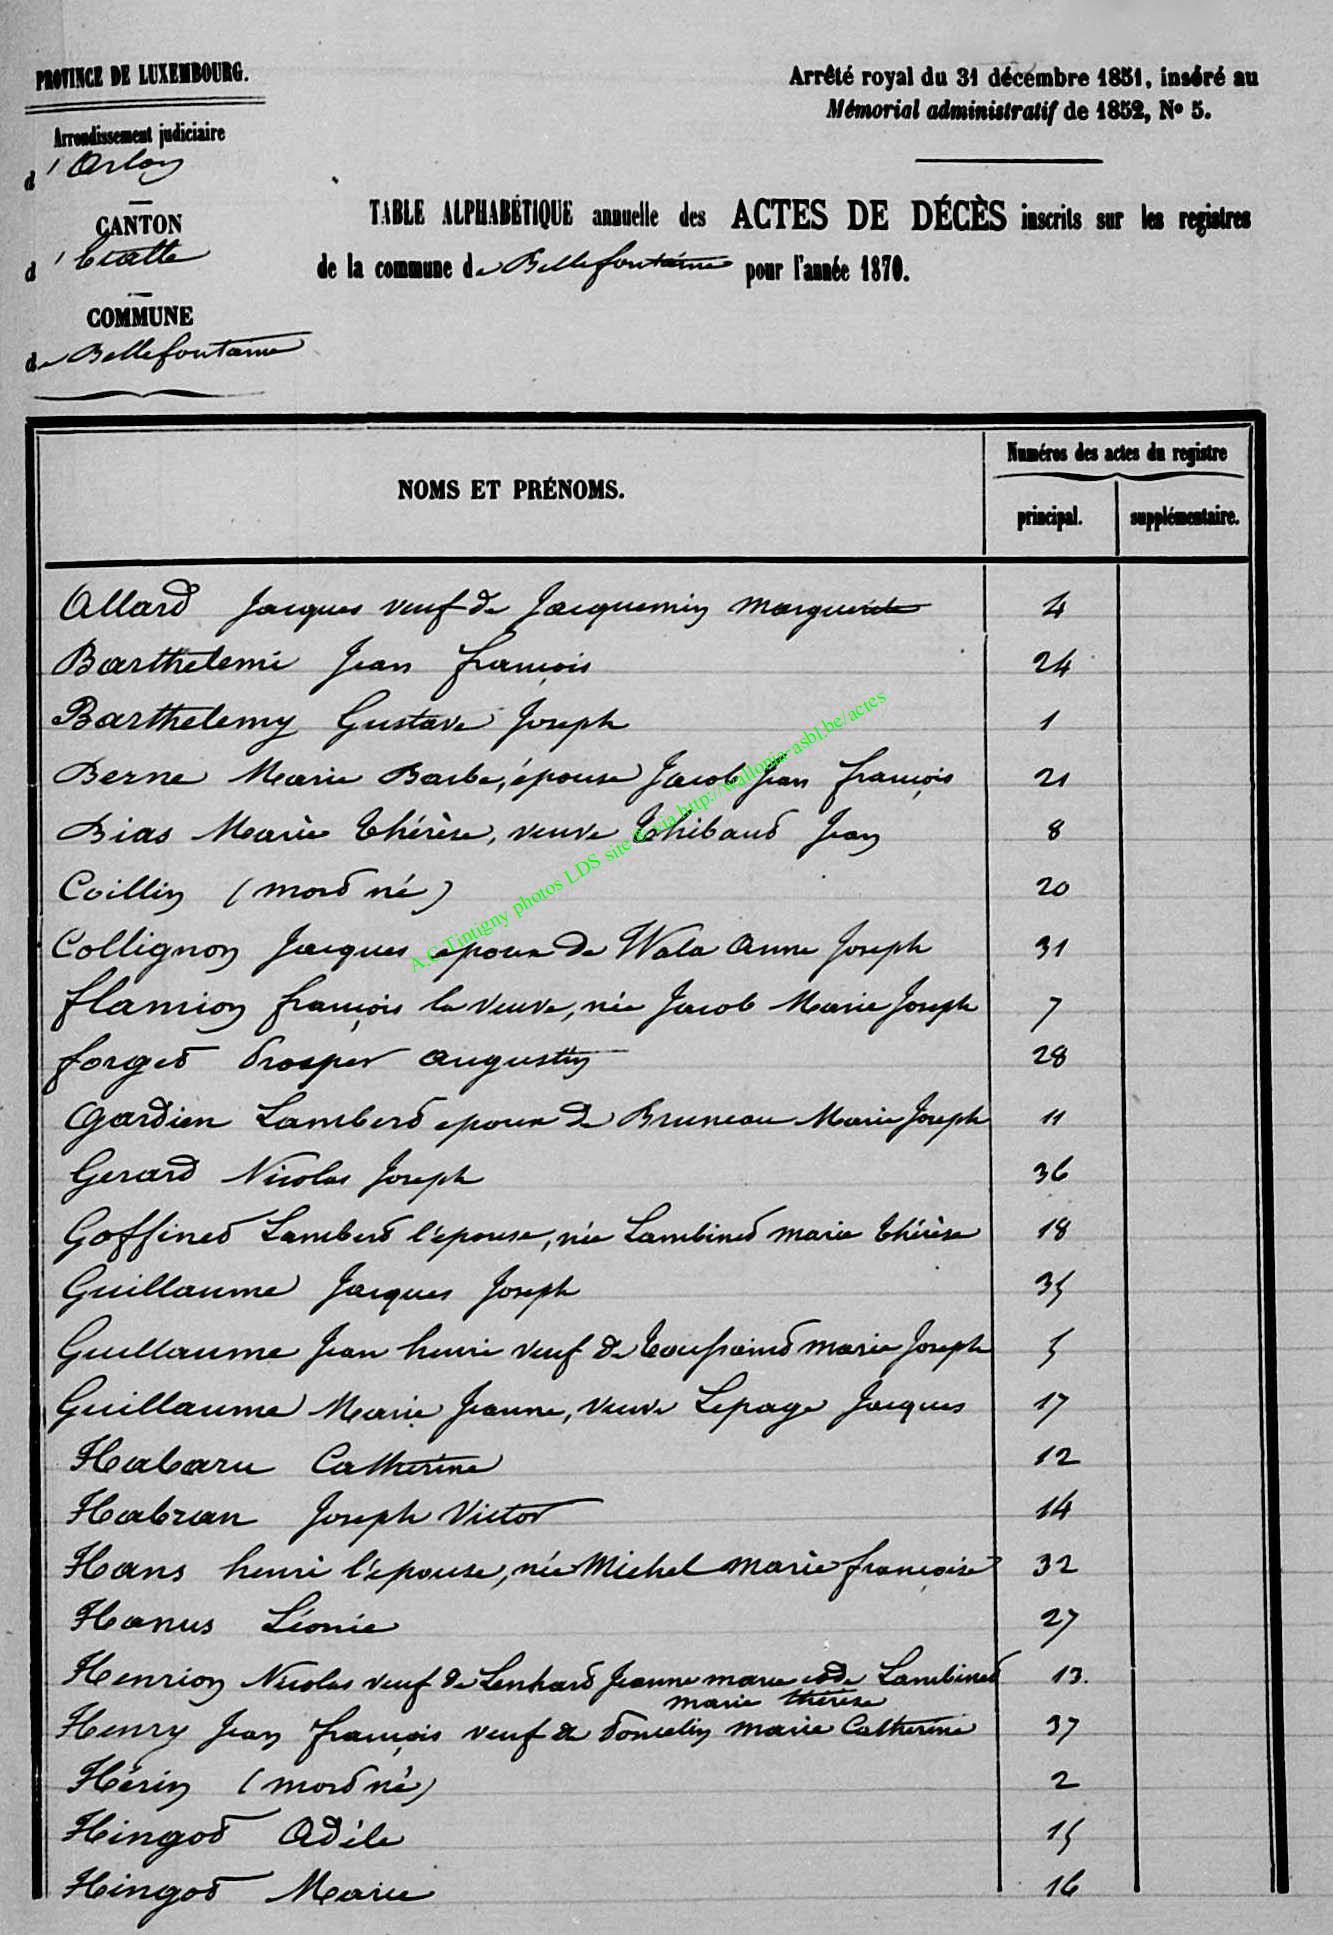 PROVINCE DE LUXEMBOURG.
Arrondissement judiciaire
d'Arlon
CANTON
d'Etalle
COMMUNE
de Bellefontaine
Arrêté royal du 31 décembre 1851, inséré au
Mémorial administratif de 1852, No 5.
TABLE ALPHABÉTIQUE annuelle des ACTES DE DÉCÈS inscrits sur les registres
de la commune de Bellefontaine pour l'année 1870.
NOMS ET PRÉNOMS.
Numéros des actes du registre
principal.
supplémentaire.
Allard Jacques veuf de Jacquemin Marguerite 4
Barthelemi Jean françois 24
Barthelemy Gustave Joseph 1
Berne Marie Barbe, épouse Jacob Jean françois 21
Bias Marie Thérèse, veuve Thibaud Jean 8
Coillin (mort né) 20
Collignon Jacques epoux de Wala Anne Joseph 31
flamion françois la veuve, née Jacob Marie Joseph 7
forget Prosper Augustin 28
Gardien Lambert epoux de Bruneau Marie Joseph 11
Gerard Nicolas Joseph 36
Goffinet Lambert l'épouse, née Lambinet marie thérèse 18
Guillaume Jacques Joseph 35
Guillaume Jean henri veuf de Toussaint marie Joseph 5
Guillaume Marie Jeanne, veuve Lepage Jacques 17
Habaru Catherine 12
Habran Joseph Victor 14
Hans henri l'epouse, née Michel Marie françoise 32
Hanus Léonie 27
Henrion Nicolas veuf de Lenhard Jeanne marie et de Lambinet 13.
marie thérèse
Henry Jean françois veuf de Poncelin marie Catherine 37
Hérin (mort né) 2
Hingot Adèle 15
Hingot Marie 16
A.C Tintigny photos LDS site via http://wallonia-asbl.be/actes